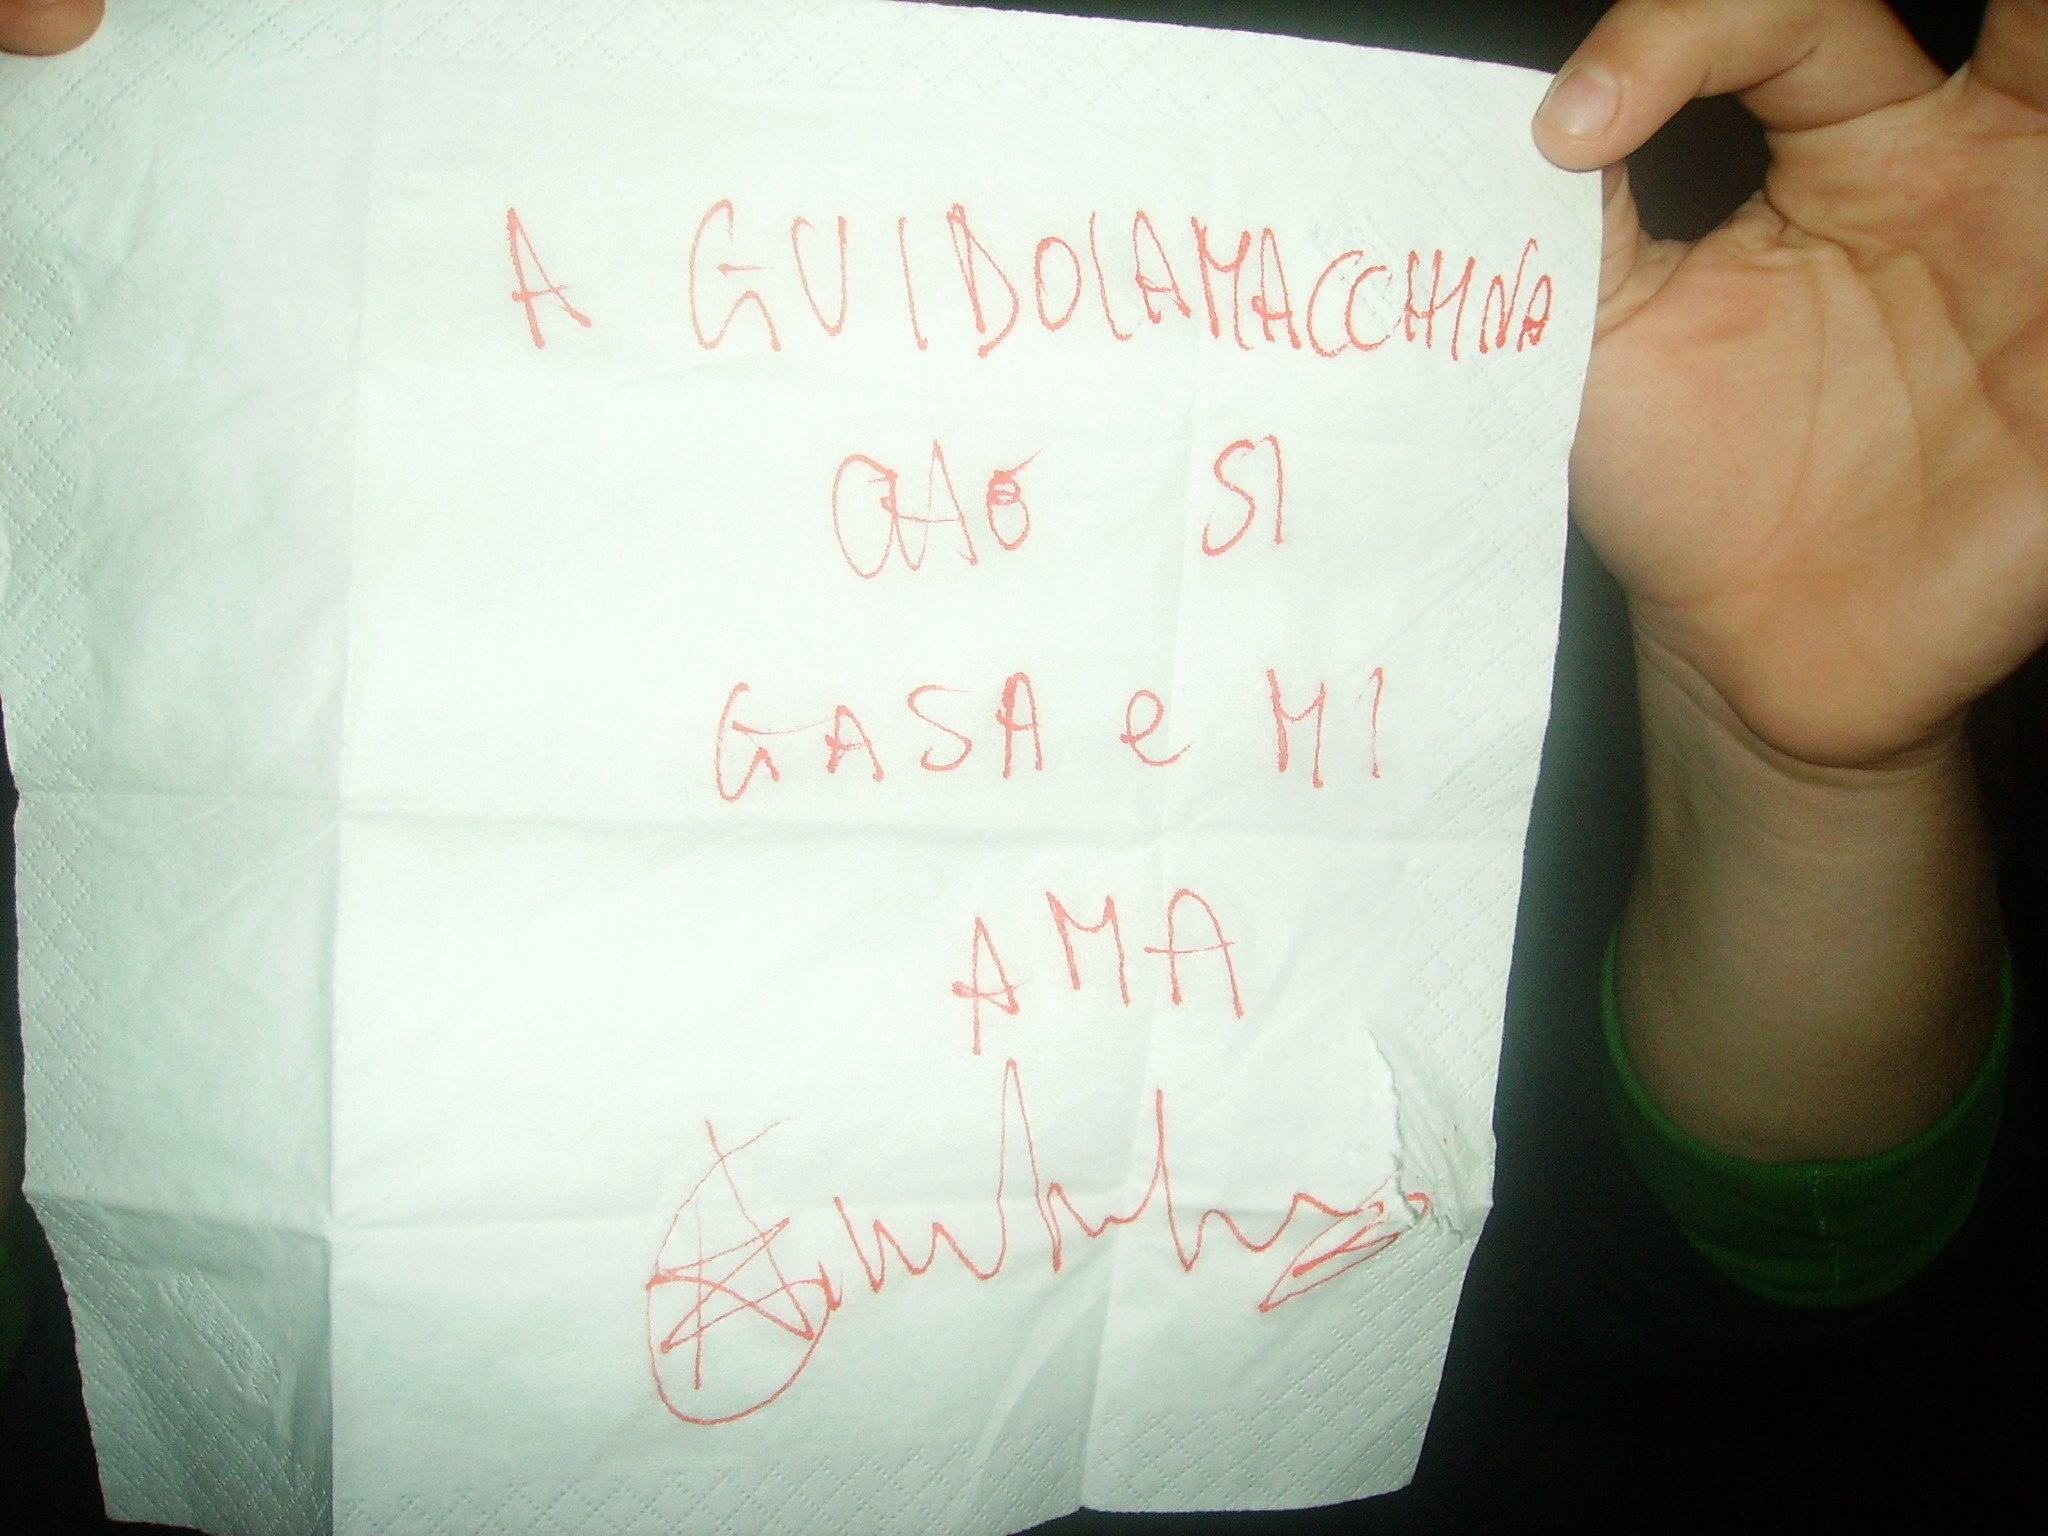 A GUIDOLAMACCHINA
SI
GASA e MI
AMA